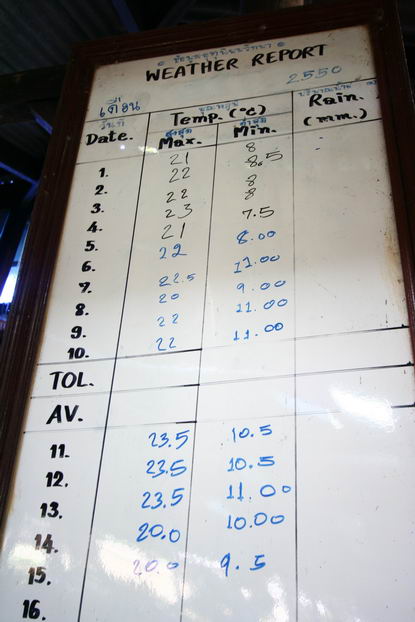 ข้อมูลอุตุนิยมวิทยา
WEATHER REPORT
2550
เดือน
อุณหภูมิ
วันที่ Temp. (°C) Rain.
สูงสุด ต่ำสุด
Date. Max. Min. (mm.)
1. 21 8 -
2. 22 8.5 -
3. 22 8
4. 23 8
5. 21 7.5
6. 22 8.00
7. 22.5 11.00
8. 20 9.00
9. 22 11.00
10. 22 11.00
TOL.
AV.
11. 23.5 10.5
12. 23.5 10.5
13. 23.5 11.00
14. 20.0 10.00
15. 20.0 9.5
16.